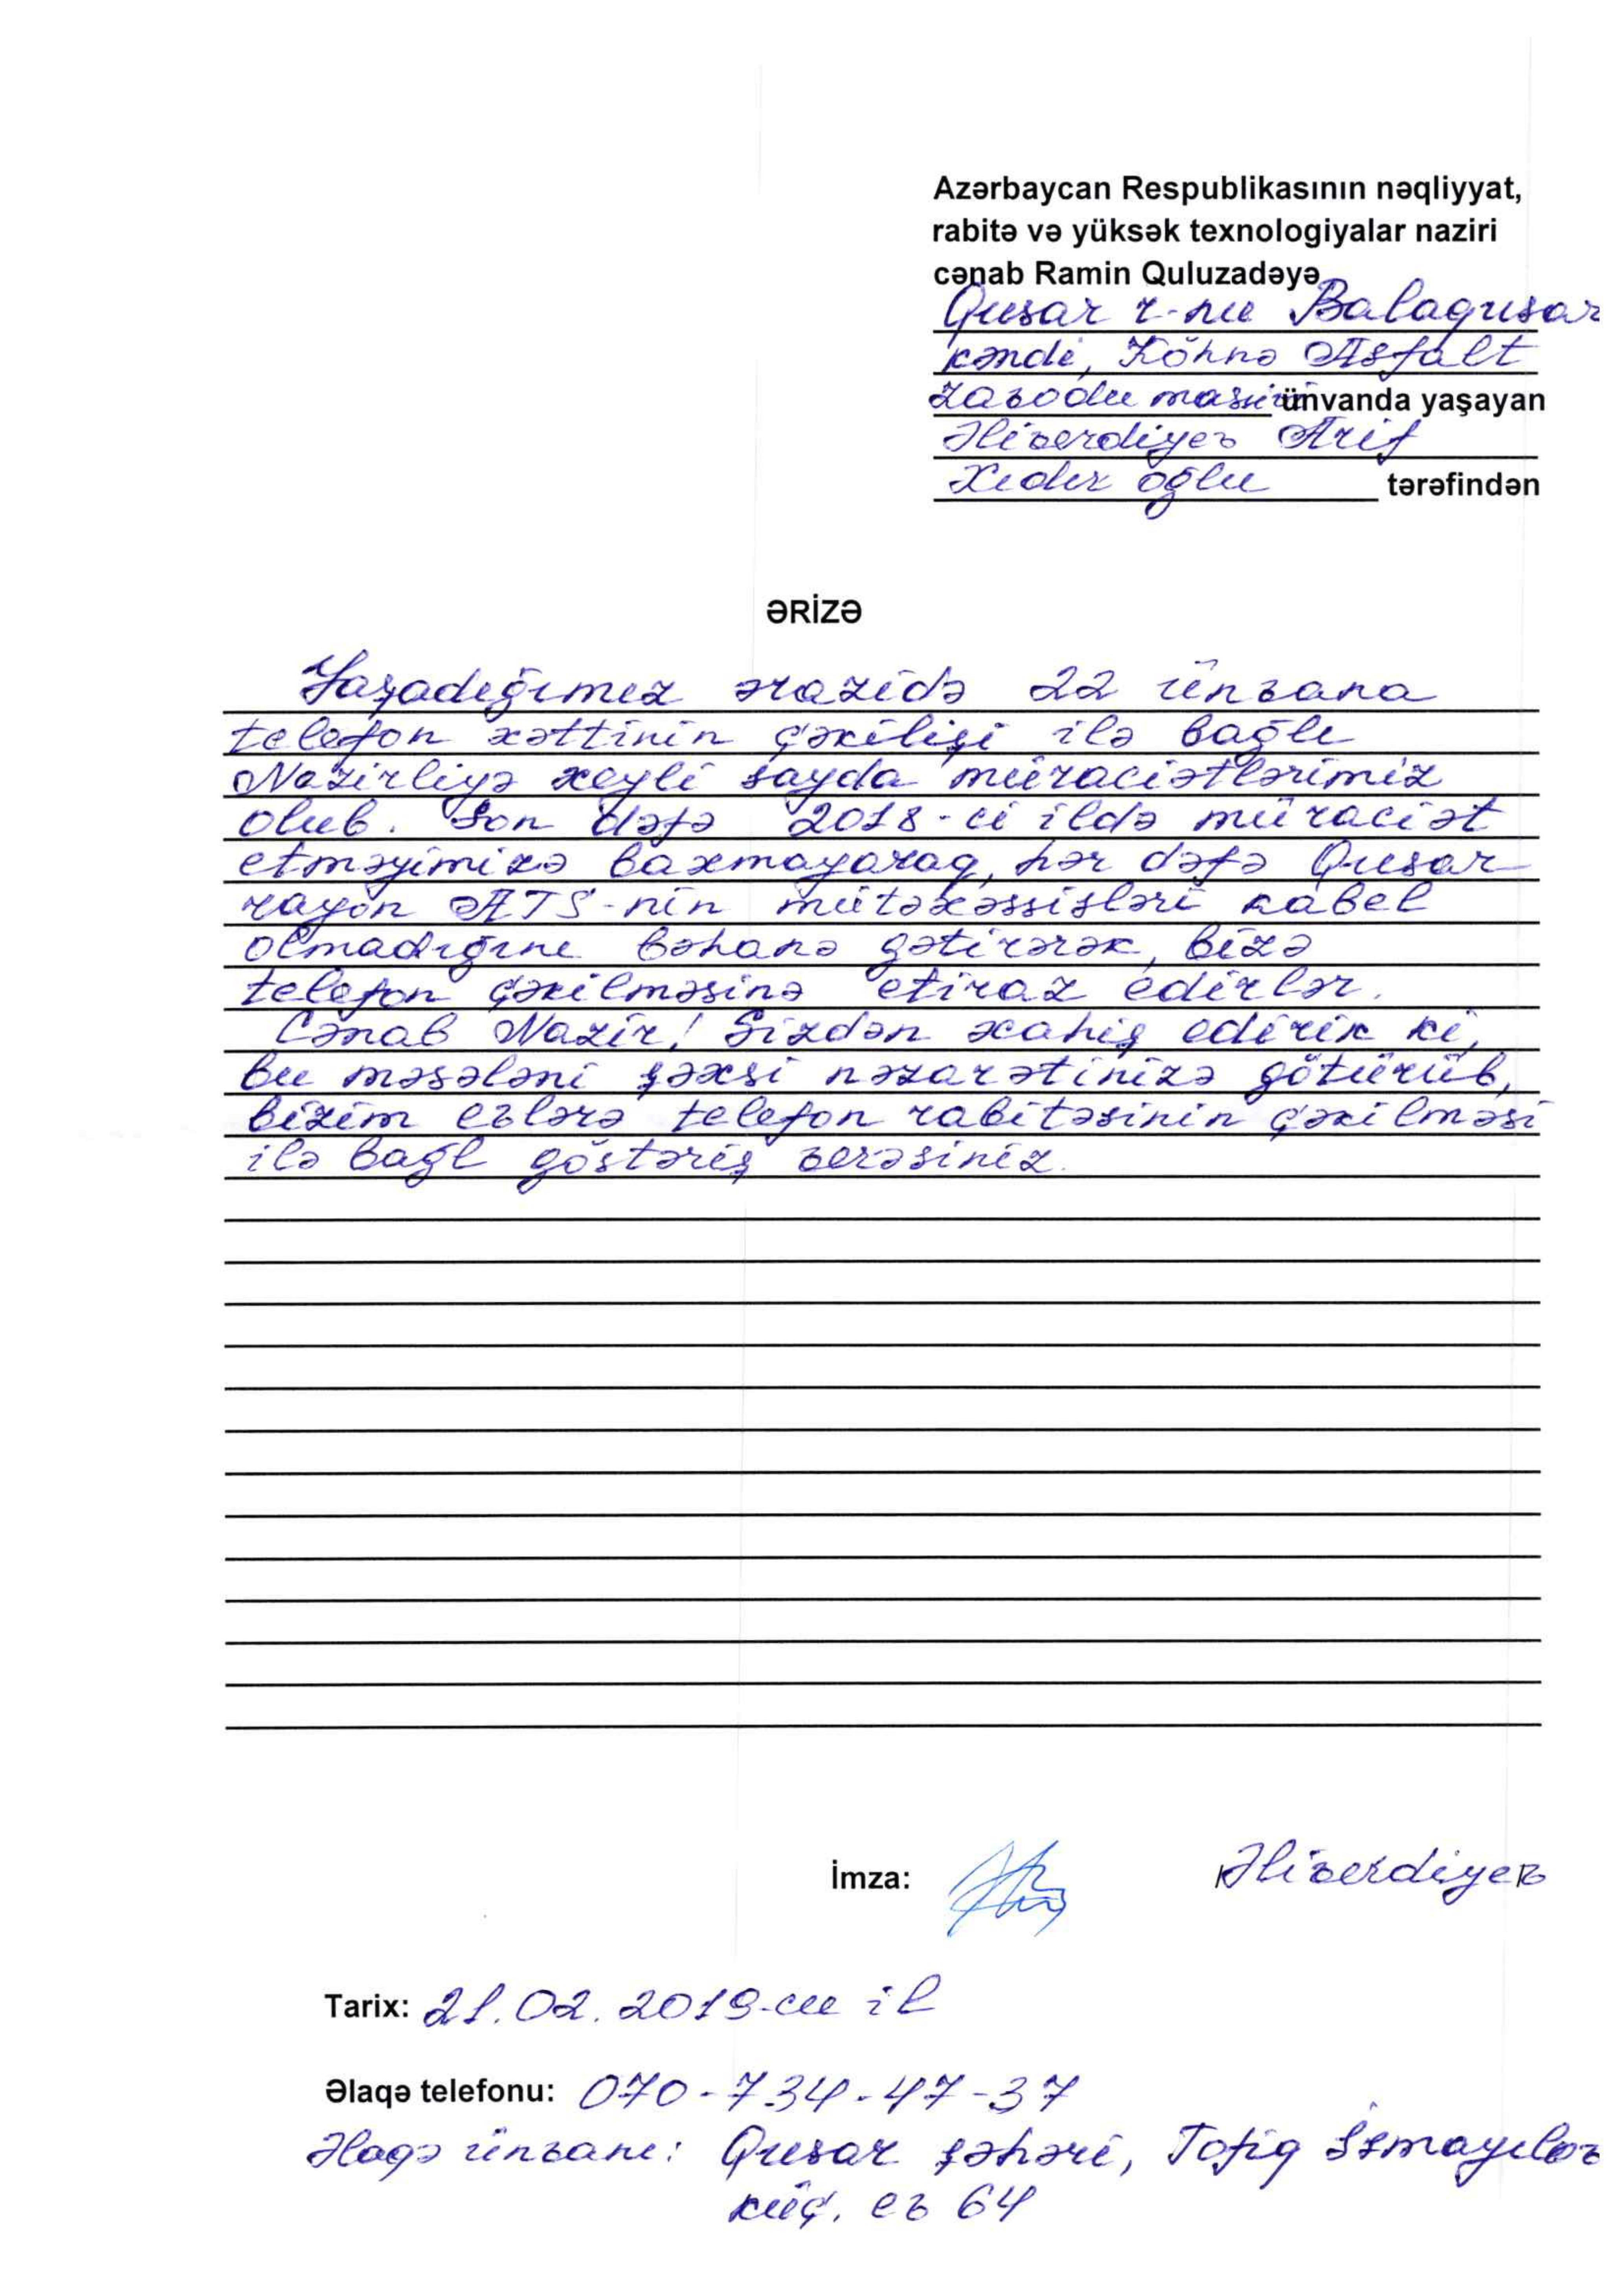 Azərbaycan Respublikasının nəqliyyat,
rabitə və yüksək texnologiyalar naziri
cənab Ramin Quluzadəyə
Qusar r-nu Balaqusar
kəndi, Köhnə Asfalt
Zavodu masivi ünvanda yaşayan
Əliverdiyev Arif
Xıdır oğlu tərəfindən
ƏRİZƏ
Yaşadığımız ərazidə 22 ünvana
telefon xəttinin çəkilişi ilə bağlı
Nazirliyə xeyli sayda müraciətlərimiz
olub. Son dəfə 2018-ci ildə müraciət
etməyimizə baxmayaraq, hər dəfə Qusar
rayon ATS-nin mütəxəssisləri kabel
olmadığını bəhanə gətirərək, bizə
telefon çəkilməsinə etiraz edirlər.
Cənab Nazir! Sizdən xahiş edirik ki,
bu məsələni şəxsi nəzarətinizə götürüb,
bizim evlərə telefon rabitəsinin çəkilməsi
ilə bağl göstəriş verəsiniz.
İmza: Əliverdiyev
Tarix: 21.02.2019-cu il
Əlaqə telefonu: 070-734-47-37
Əlaqə ünvanı: Qusar şəhəri, Tofiq İsmayılov
küç. ev 64